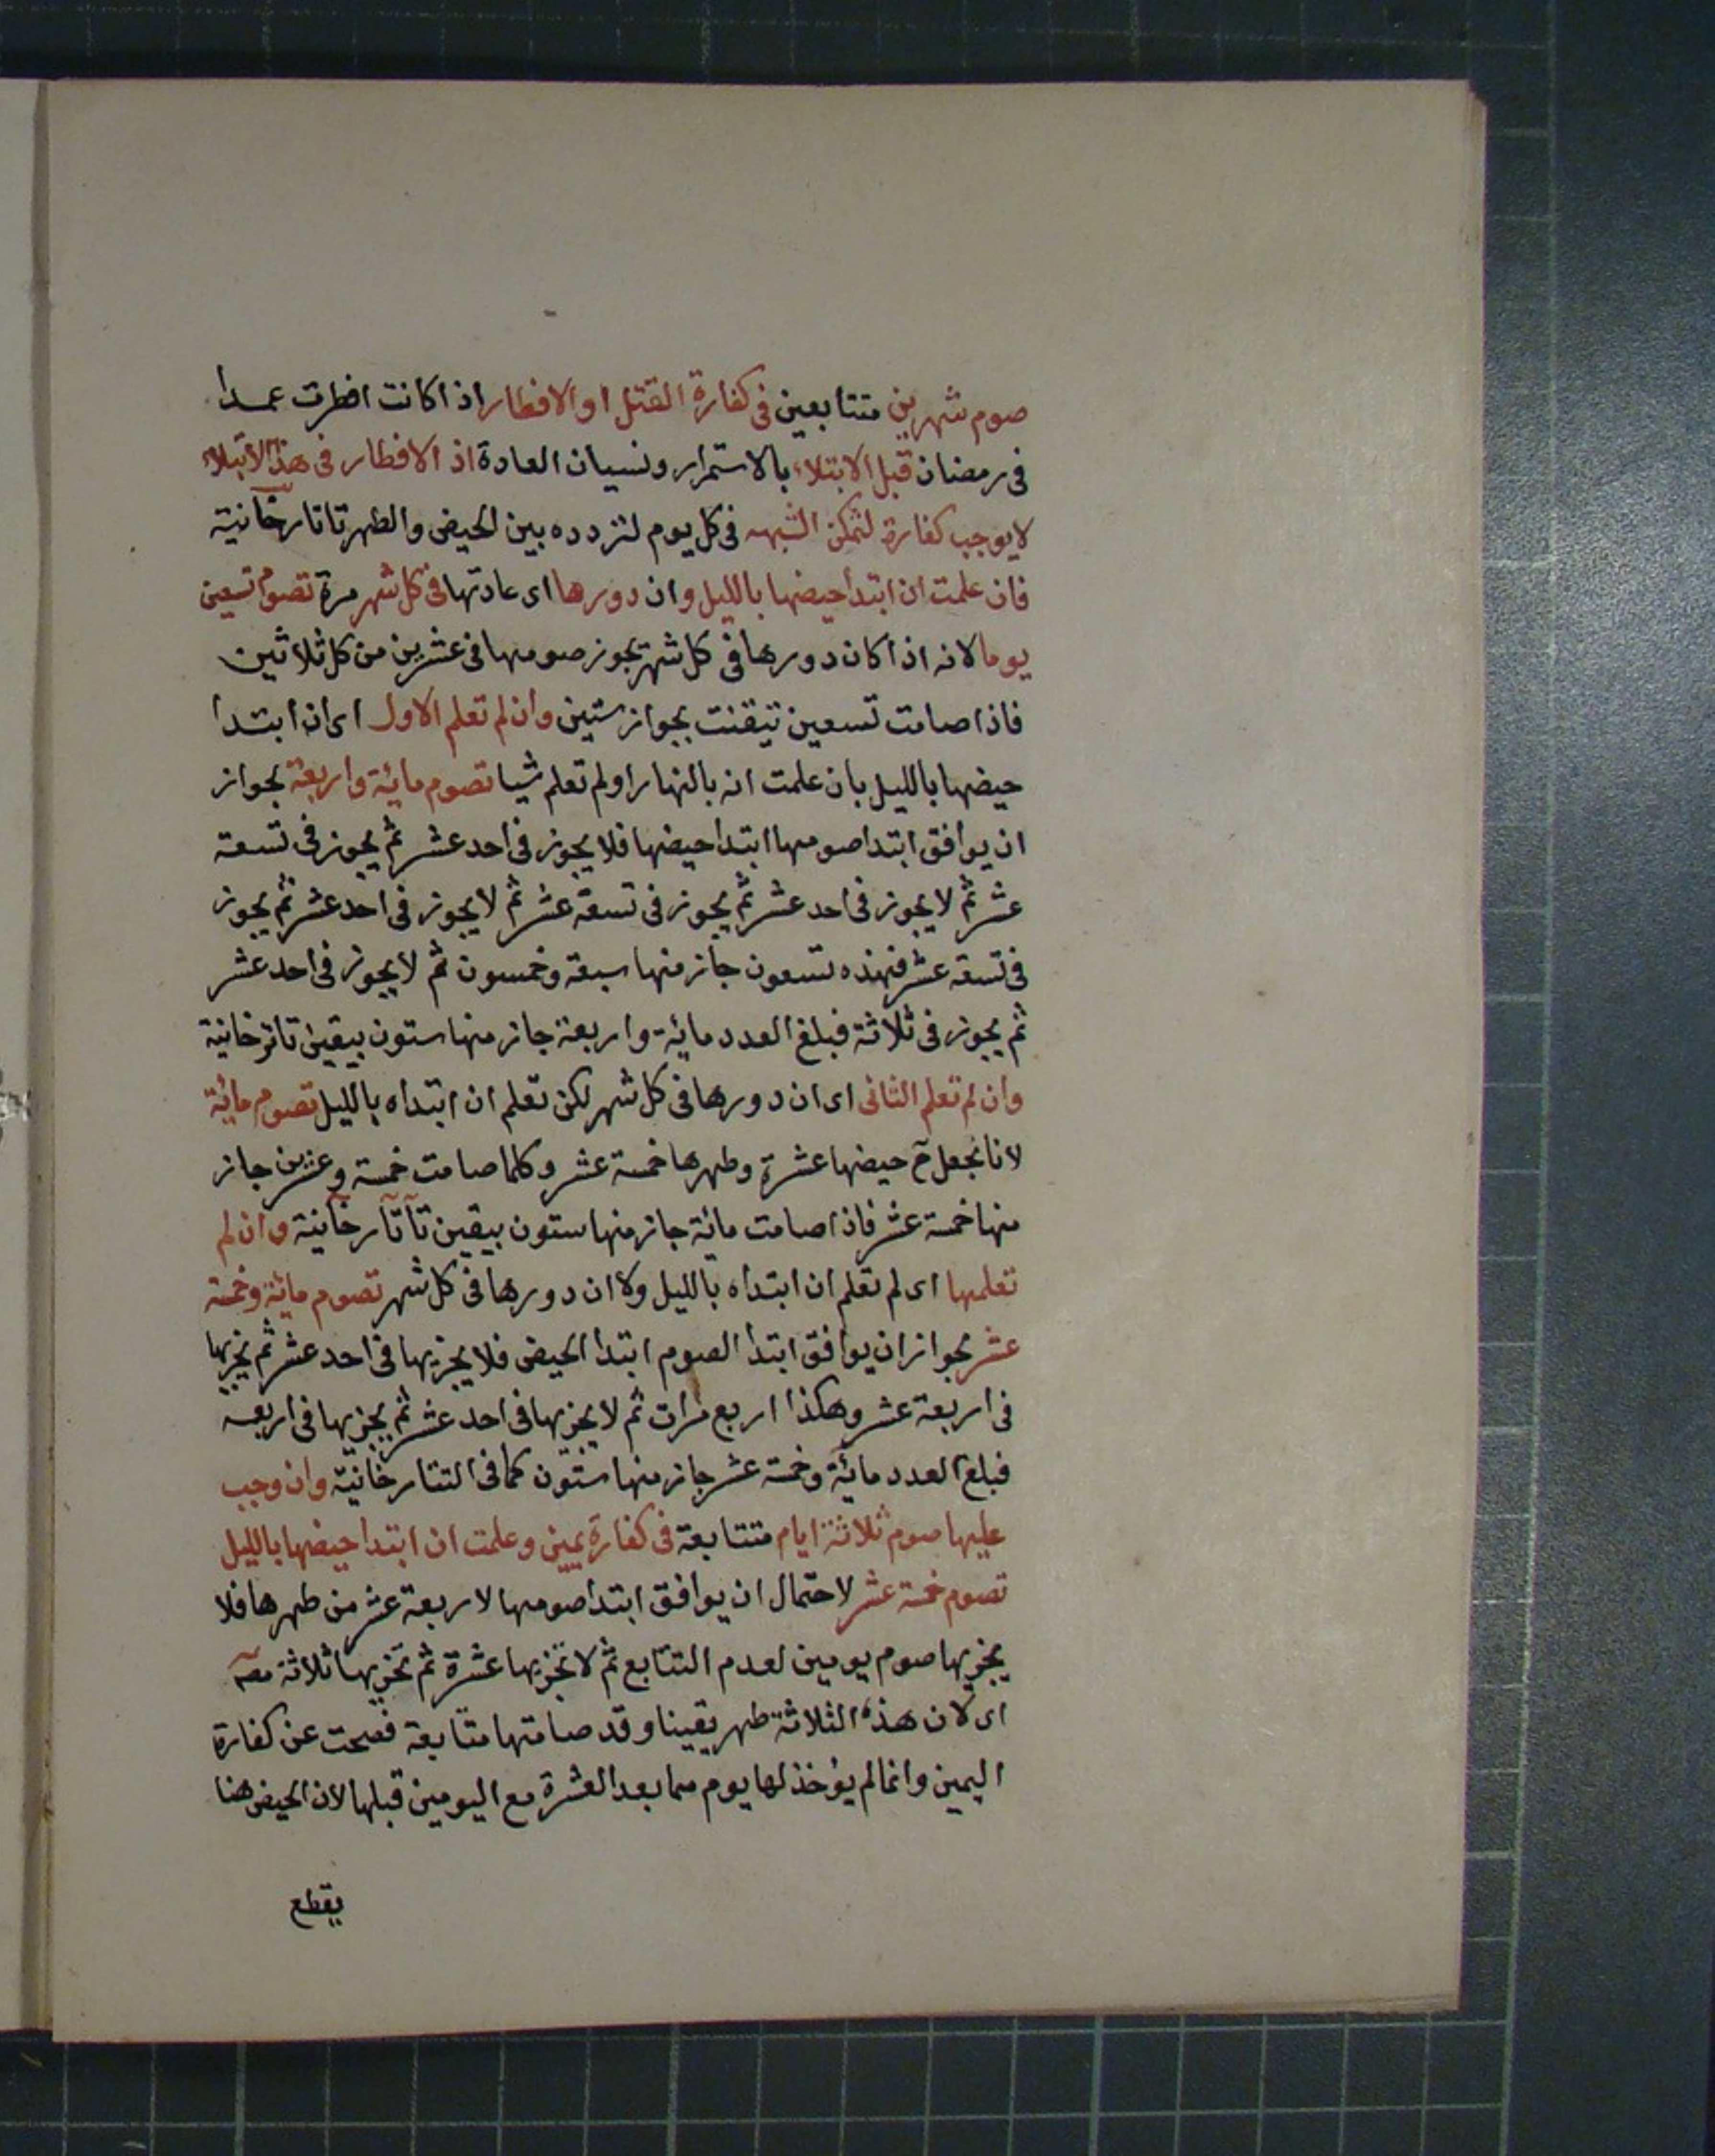 صوم شهرين متتابعين فى كفارة القتل او الافطار اذا كانت افطرت عمدا
فى رمضان قبل الابتلاء بالاستمرار ونسيان العادة اذ الافطار فى هذا الابتلاء
لا يوجب كفارة لتمكن الشبهه فى كل يوم لتردده بين الحيض والطهر تاتارخانية
فان علمت ان ابتدأ حيضها بالليل وان دورها اى عادتها فى كل شهر مرة تصوم تسعين
يوما لانه اذا كان دورها فى كل شهر يجوز صومها فى عشرين من كل ثلاثين
فاذا صامت تسعين تيقنت بجواز ستين وان لم تعلم الاول اى ان ابتدا
حيضها بالليل بان علمت انه بالنهار او لم تعلم شيا تصوم مائة واربعة لجواز
ان يوافق ابتدا صومها ابتدا حيضها فلا يجوز فى احد عشر ثم يجوز فى تسعة
عشر ثم لا يجوز فى احد عشر ثم يجوز فى تسعة عشر ثم لا يجوز فى احد عشر ثم يجوز
فى تسعة عشر فهذه تسعون جاز منها سبعة وخمسون ثم لا يجوز فى احد عشر
ثم يجوز فى ثلاثة فبلغ العدد مائة واربعة جاز منها ستون بيقين تاترخانية
وان لم تعلم الثانى اى ان دورها فى كل شهر لكن تعلم ان ابتداه بالليل تصوم مائة
لانا نجعل ح حيضها عشرة وطهرها خمسة عشر وكلما صامت خمسة وعشرين جاز
منها خمسة عشر فاذا صامت مائة جاز منها ستون بيقين تاتارخانية وان لم
تعلمها اى لم تعلم ان ابتداه بالليل ولا ان دورها فى كل شهر تصوم مائة وخمسة
عشر لجواز ان يوافق ابتدأ الصوم ابتدأ الحيض فلا يجزيها فى احد عشر ثم يجزيها
فى اربعة عشر وهكذا اربع مرات ثم لا يجزيها فى احد عشر ثم يجزيها فى اربعه
فبلغ العدد مائة وخمسة عشر جاز منها ستون كما فى التتارخانية وان وجب
عليها صوم ثلاثة ايام متتابعة فى كفارة يمين وعلمت ان ابتدا حيضها بالليل
تصوم خمسة عشر لاحتمال ان يوافق ابتدا صومها لاربعة عشر من طهرها فلا
يجزيها صوم يومين لعدم التتابع ثم لا تجزيها عشرة ثم تجزيها ثلاثة
اى لان هذه الثلاثة طهر يقينا وقد صامتها متتابعة فصحت عن كفارة
اليمين وانما لم يؤخذ لها يوم مما بعد العشرة مع اليومين قبلها لان الحيض هنا
يقطع